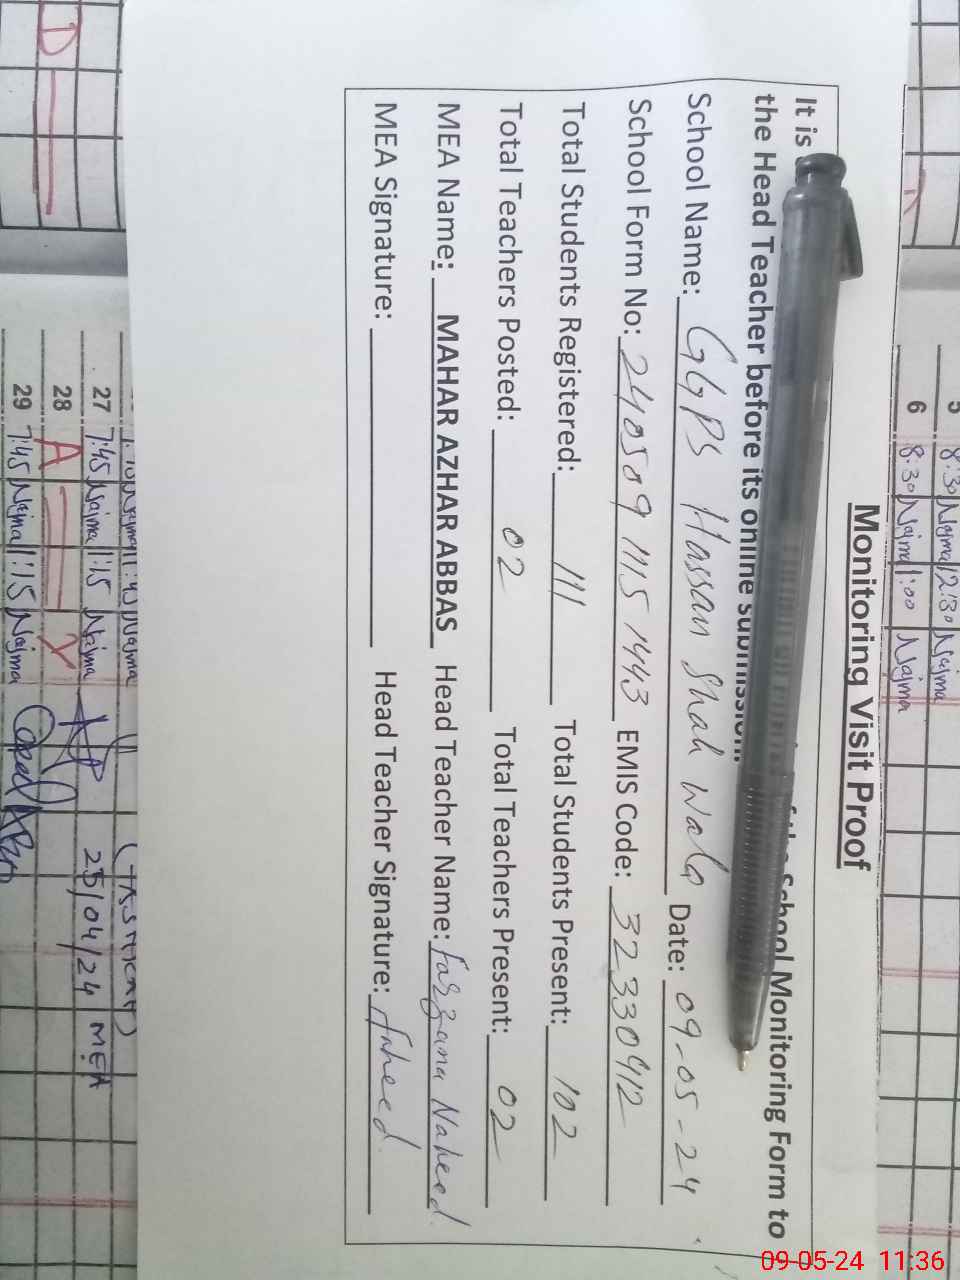 Monitoring Visit Proof
It is School Monitoring Form to
the Head Teacher before its online submission.
School Name: GGPS Hassan Shah Wala Date: 09-05-24
School Form No: 240509 1115 1443 EMIS Code: 32330412
Total Students Registered: 111 Total Students Present: 102
Total Teachers Posted: 02 Total Teachers Present: 02
MEA Name: MAHAR AZHAR ABBAS Head Teacher Name: Farzana Naheed
MEA Signature: Head Teacher Signature: Naheed
5 8:30 Najma 12:30 Najma
6 8:30 Najma 1:00 Najma
D
27 7:45 Najma 1:15 Najma 25/04/24 MEA
28 A
29 7:45 Najma 1:15 Najma
09-05-24 11:36